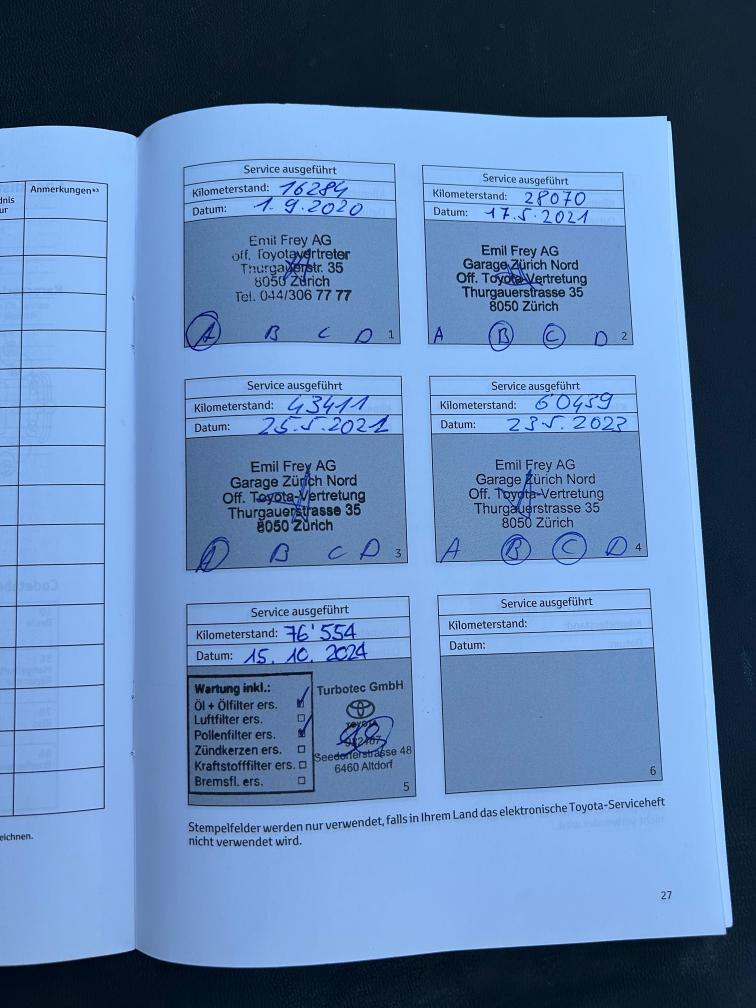 Anmerkungen*³
dnis
ur
eichnen.
Service ausgeführt
Kilometerstand: 16284
Datum: 1.9.2020
Emil Frey AG
off. Toyotavertreter
Thurgauerstr. 35
8050 Zürich
Tel. 044/306 77 77
A B C D 1
Service ausgeführt
Kilometerstand: 28070
Datum: 17.5.2021
Emil Frey AG
Garage Zürich Nord
Off. Toyota-Vertretung
Thurgauerstrasse 35
8050 Zürich
A B C D 2
Service ausgeführt
Kilometerstand: 43411
Datum: 25.5.2021
Emil Frey AG
Garage Zürich Nord
Off. Toyota-Vertretung
Thurgauerstrasse 35
8050 Zürich
A B C D 3
Service ausgeführt
Kilometerstand: 60459
Datum: 23.5.2023
Emil Frey AG
Garage Zürich Nord
Off. Toyota-Vertretung
Thurgauerstrasse 35
8050 Zürich
A B C D 4
Service ausgeführt
Kilometerstand: 76'554
Datum: 15.10.2024
Wartung inkl.:
Öl + Ölfilter ers.
Luftfilter ers.
Pollenfilter ers.
Zündkerzen ers.
Kraftstofffilter ers.
Bremsfl. ers.
Turbotec GmbH
TOYOTA
Seedorferstrasse 48
6460 Altdorf
5
Service ausgeführt
Kilometerstand:
Datum:
6
Stempelfelder werden nur verwendet, falls in Ihrem Land das elektronische Toyota-Serviceheft
nicht verwendet wird.
27